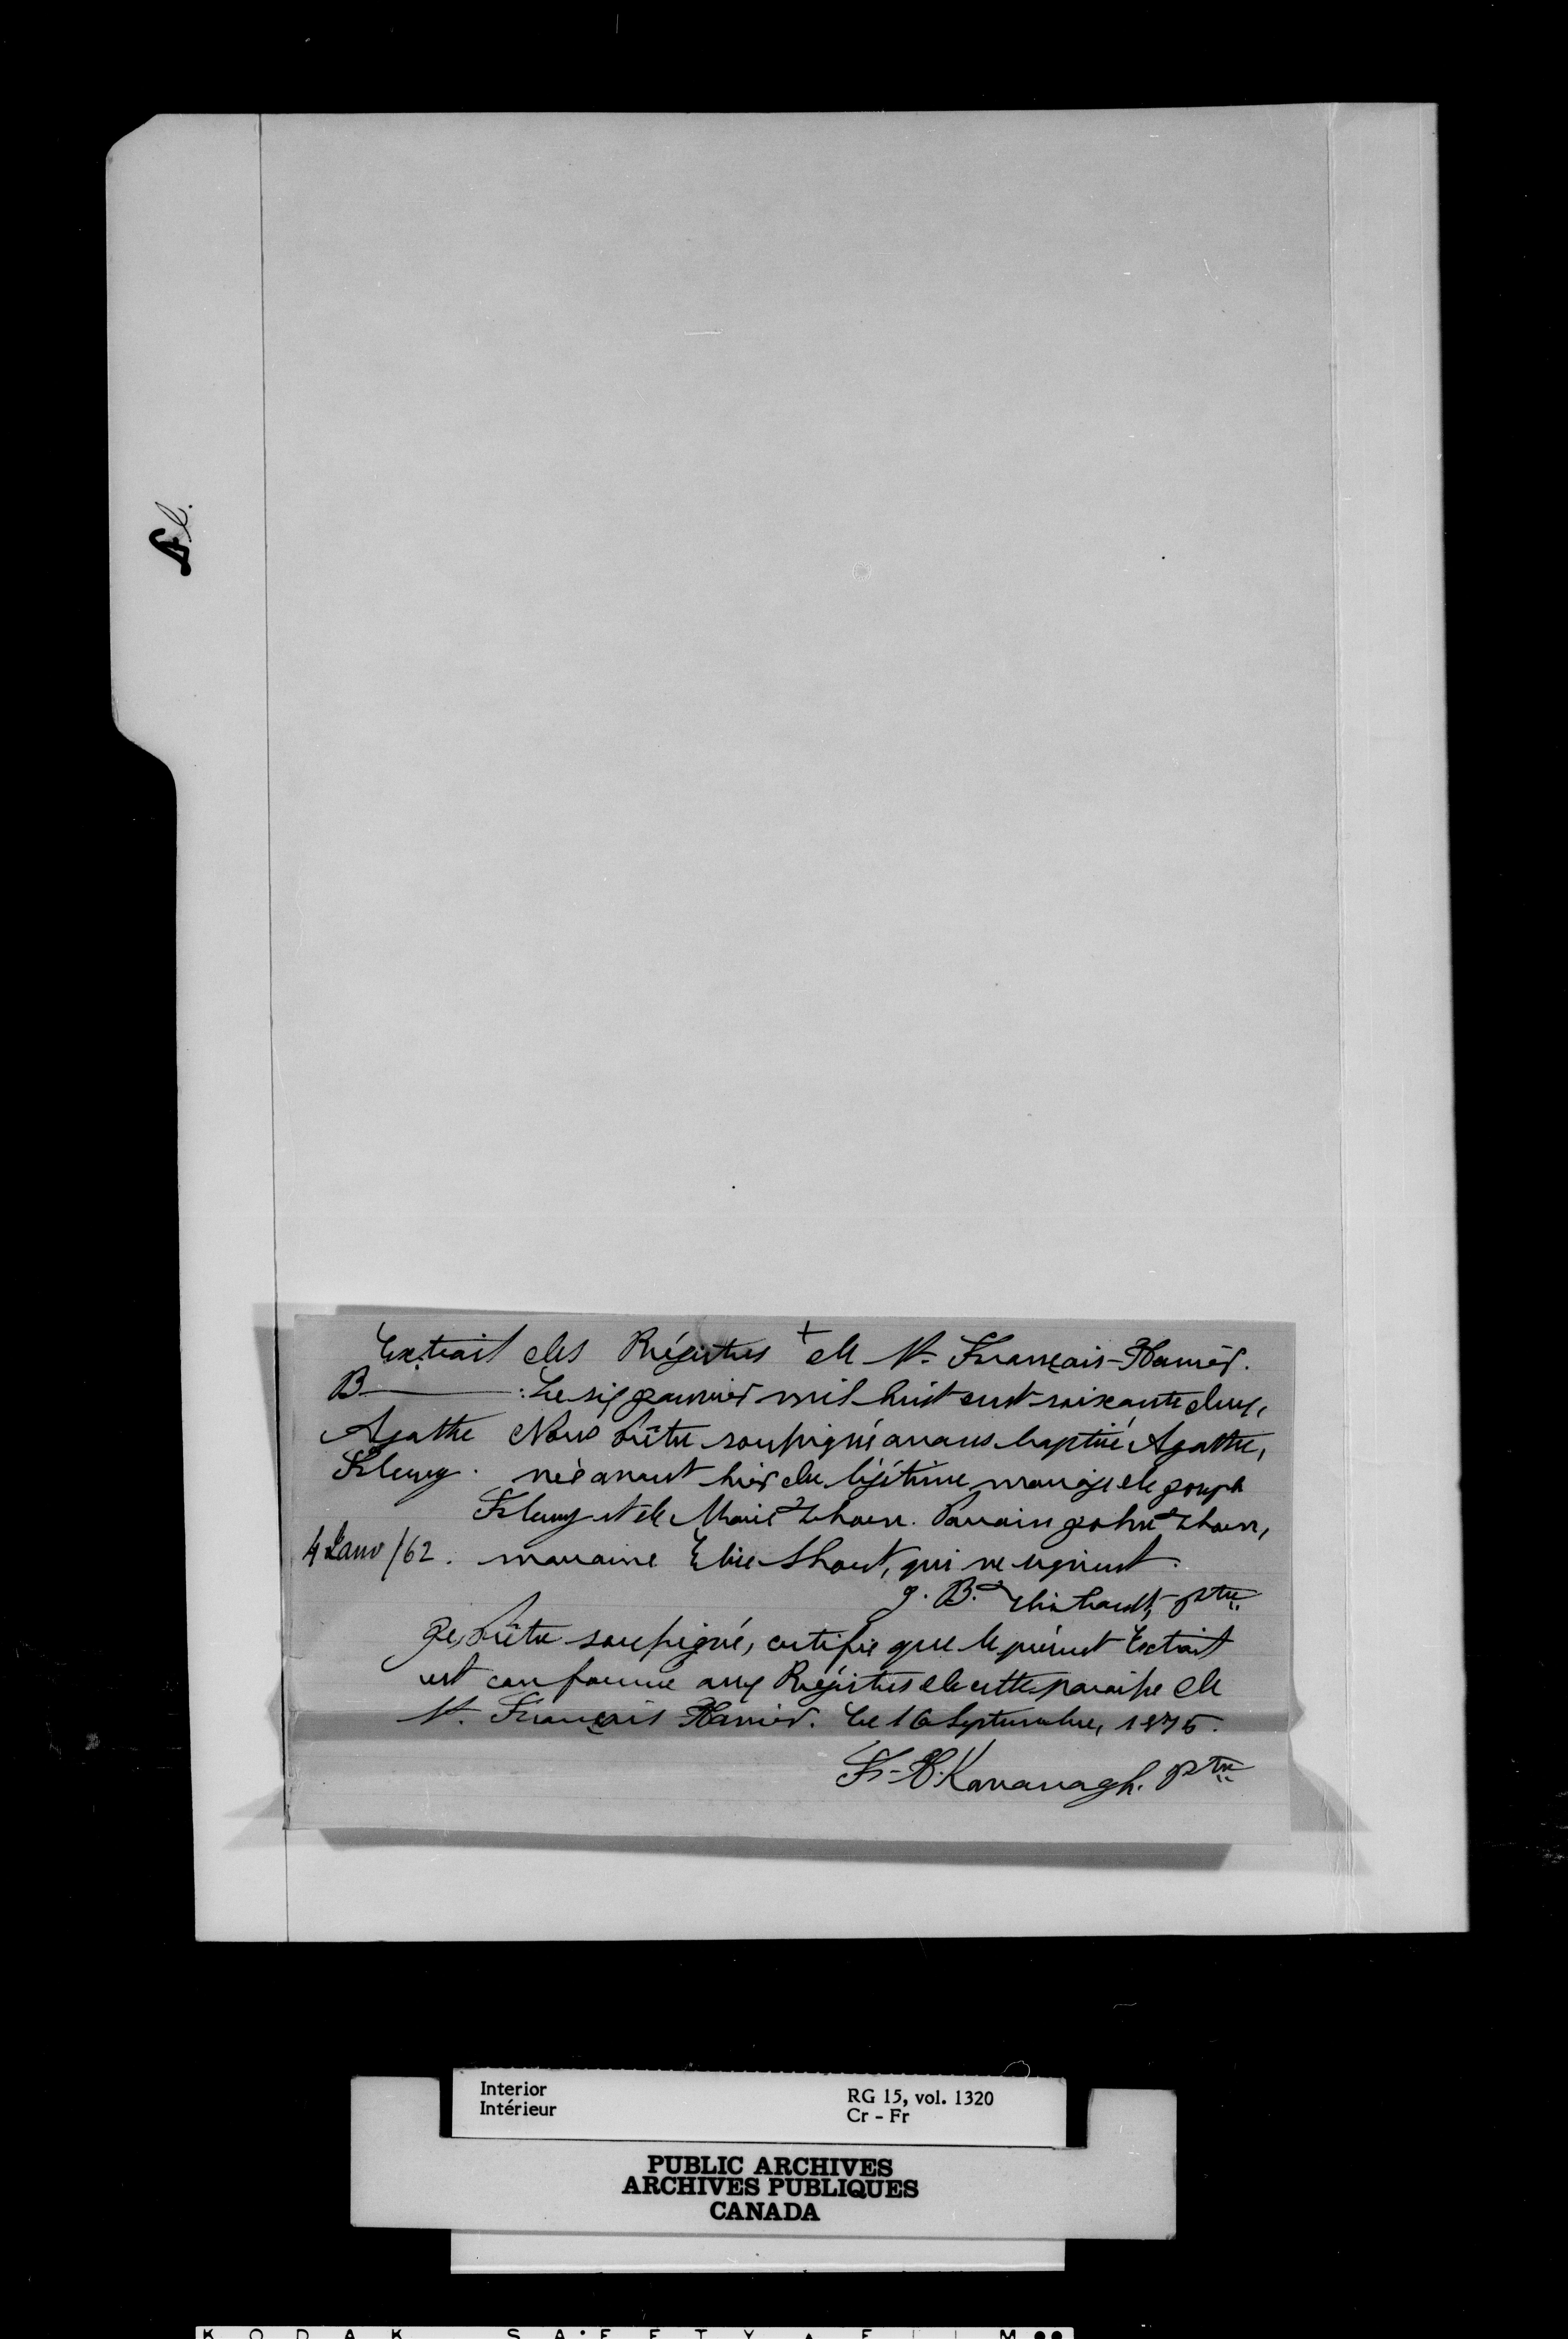 Fl.
Extrait des Régistres + de St. François-Xavier.
B. : Le six janvier mil huit cent soixante deux,
Agathe Nous Prêtre soussigné avons baptisé Agathe,
Fleury. née avant hier du légitime mariage de Joseph
Fleury et de Marie Parrain John
4 Janv/62. marraine Short, qui ne signent.
J. B. Thibault, ptre
Je, Prêtre soussigné, certifie que le présent Extrait
est conforme aux Régistres de cette paroisse de
St. François Xavier. Le 16 Septembre, 1875.
Fs-X. Kavanagh. ptre
Interior
Intérieur
RG 15, vol. 1320
Cr - Fr
PUBLIC ARCHIVES
ARCHIVES PUBLIQUES
CANADA
KODAK SAFETY FILM